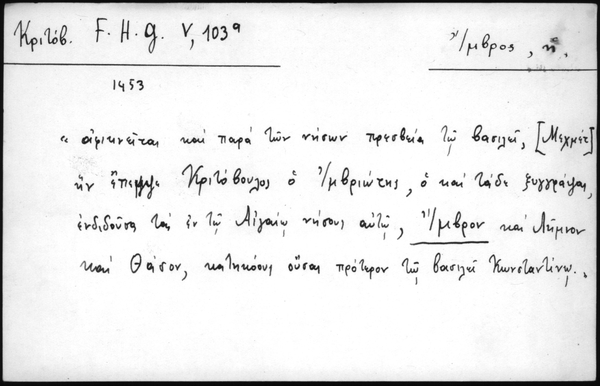 Κριτόβ. F. H. G. V, 103ª
Ἴμβρος, ἡ.
1453
« ἀφικνεῖται καὶ παρὰ τῶν νήσων πρεσβεία τῷ βασιλεῖ, [Μεχμέτ]
ἣν ἔπεμψε Κριτόβουλος ὁ Ἰμβριώτης, ὁ καὶ τάδε ξυγγράψας,
ἐνδιδοῦσα τὰς ἐν τῷ Αἰγαίῳ νήσους αὐτῷ, Ἴμβρον καὶ Λῆμνον
καὶ Θάσον, κατηκόους οὔσας πρότερον τῷ βασιλεῖ Κωνσταντίνῳ.